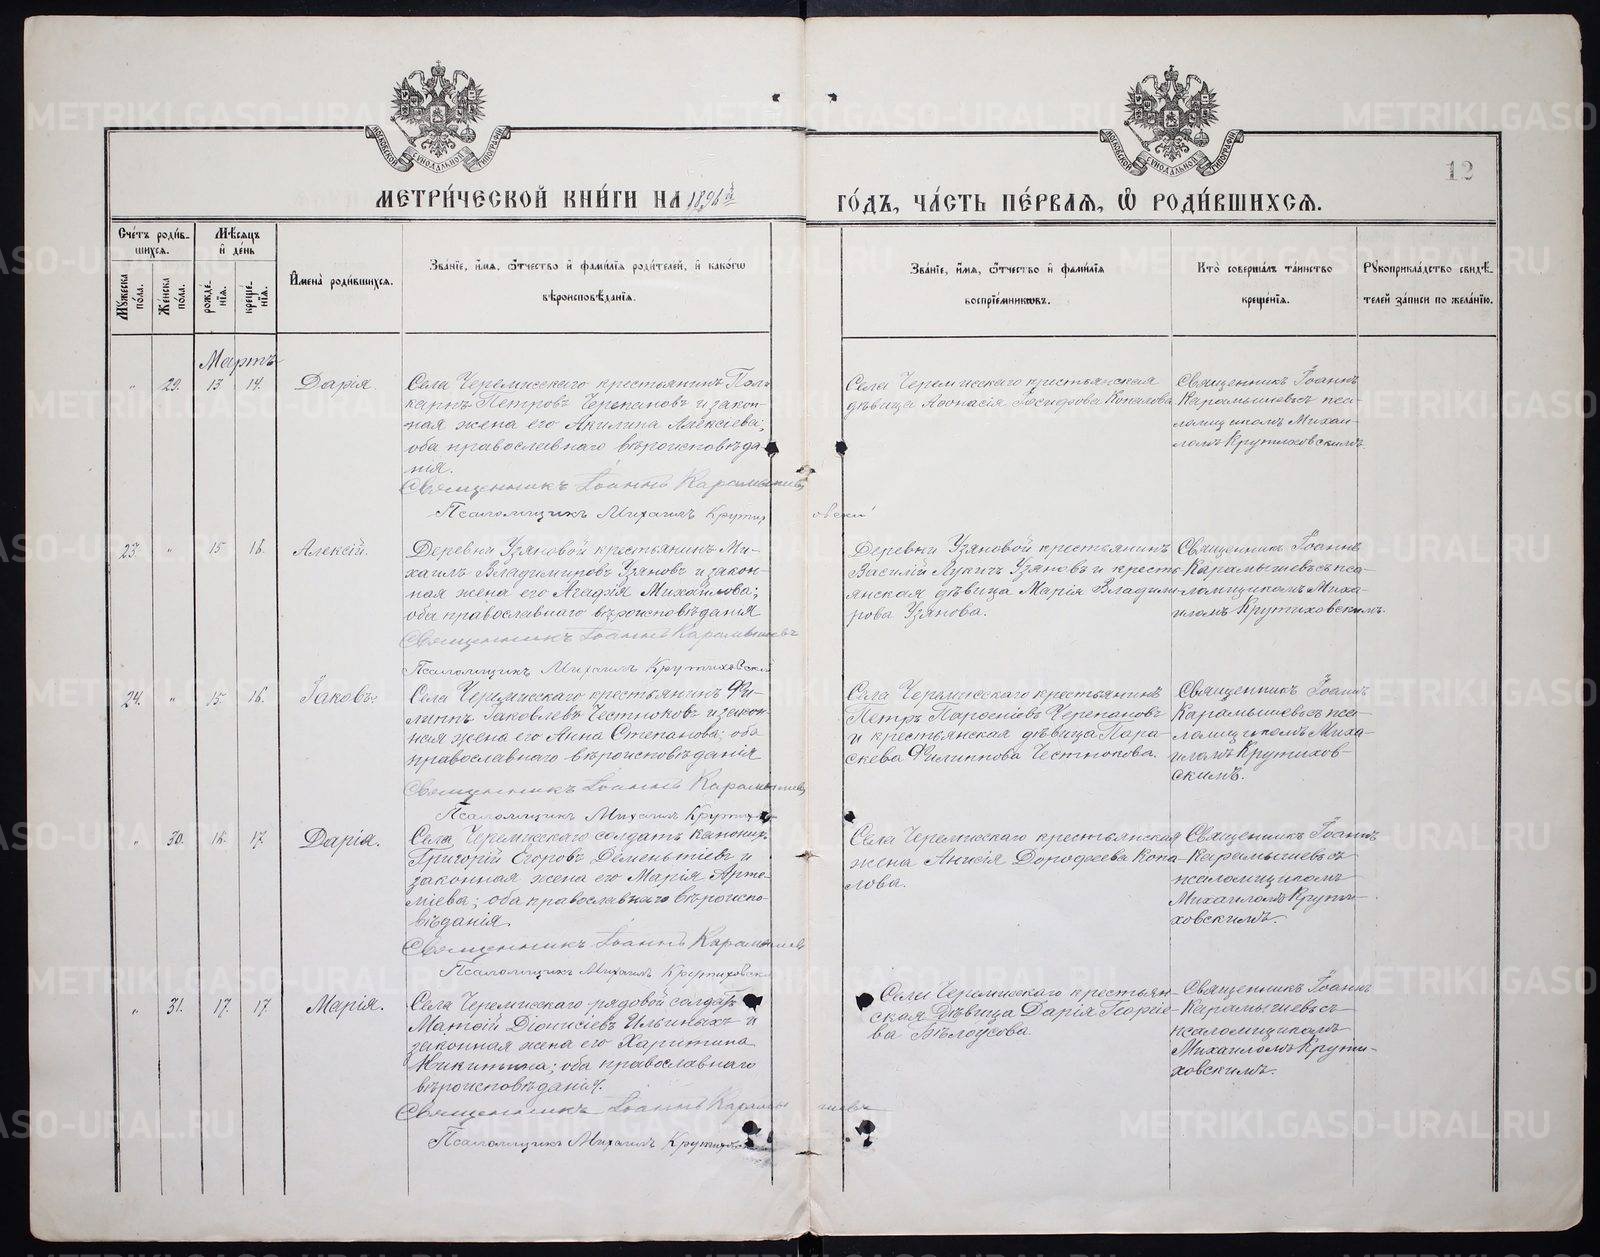 МЕТРИ́ЧЕСКОЙ КНИ́ГИ НА 1896й
ГО́ДЪ, ЧА́СТЬ ПЕ́РВАЯ, Ѽ РОДИ́ВШИХСЯ.
12
МОСКОВСКОЙ СѴНОДАЛЬНОЙ ТИПОГРАФІИ
МОСКОВСКОЙ СѴНОДАЛЬНОЙ ТИПОГРАФІИ
Сче́тъ роди́в-
шихся.
Мужеска по́ла.
Женска по́ла.
Мѣ́сяцъ
и҆ де́нь
рожде-
нїя.
креще-
нїя.
И҆мена̀ роди́вшихся.
Зва́нїе, и҆́мя, ѻ҆́тчество и҆ фами́лїя роди́телей, и҆ како́гѡ
вѣроисповѣ́данїя.
Зва́нїе, и҆́мя, ѻ҆́тчество и҆ фами́лїя
воспрїе́мникѡвъ.
Кто̀ соверша́лъ та́инство
креще́нїя.
Рꙋкоприкла́дство свидѣ́-
телей за́писи по жела́нїю.
Мартъ
„ 29. 13. 14. Дарія.
Села Черемисскаго крестьянинъ Поли-
карпъ Петровъ Черепановъ и закон-
ная жена его Акилина Алексіева;
оба православнаго вѣроисповѣда-
нія.
Священникъ Іоаннъ Карамышевъ
Псаломщикъ Михаилъ Крутиховскій
Села Черемисскаго крестьянская
дѣвица Аѳонасія Іосифова Копалова
Священникъ Іоаннъ
Карамышевъ съ пса-
ломщикомъ Михаи-
ломъ Крутиховскимъ.
23. „ 15. 16. Алексій.
Деревни Узяновой крестьянинъ Ми-
хаилъ Владимировъ Узяновъ и закон-
ная жена его Агафія Михайлова;
оба православнаго вѣроисповѣданія
Священникъ Іоаннъ Карамышевъ
Псаломщикъ Михаилъ Крутиховскій
Деревни Узяновой крестьянинъ
Василій Лукичъ Узяновъ и кресть-
янская дѣвица Марія Владими-
рова Узянова.
Священникъ Іоаннъ
Карамышевъ съ пса-
ломщикомъ Миха-
иломъ Крутиховскимъ.
24. „ 15. 16. Іаковъ.
Села Черемисскаго крестьянинъ Фи-
липпъ Іаковлевъ Честноковъ и закон-
ная жена его Анна Степанова; оба
православнаго вѣроисповѣданія
Священникъ Іоаннъ Карамышевъ
Псаломщикъ Михаилъ Крутихо
Села Черемисскаго крестьянинъ
Петръ Парѳеніевъ Черепановъ
и крестьянская дѣвица Пара-
скева Филиппова Честнокова.
Священникъ Іоаннъ
Карамышевъ съ пса-
ломщикомъ Миха-
иломъ Крутихов-
скимъ.
„ 30. 16. 17. Дарія.
Села Черемисскаго солдатъ канонир.
Григорій Егоровъ Дементьевъ и
законная жена его Марія Арте-
міева; оба православнаго вѣроиспо-
вѣданія.
Священникъ Іоаннъ Карамышевъ
Псаломщикъ Михаилъ Крутиховск
Села Черемисскаго крестьянская
жена Анисія Дороѳеева Копа-
лова.
Священникъ Іоаннъ
Карамышевъ съ
псаломщикомъ
Михаиломъ Крути-
ховскимъ.
„ 31. 17. 17. Марія.
Села Черемисскаго рядовой солдатъ
Матѳій Діонисіевъ Ильиныхъ и
законная жена его Харитина
Никитина; оба православнаго
вѣроисповѣданія.
Священникъ Іоаннъ Карамышевъ
Псаломщикъ Михаилъ Крутихов
Села Черемисскаго крестьян-
ская дѣвица Дарія Георгіе-
ва Бѣлоусова.
Священникъ Іоаннъ
Карамышевъ съ
псаломщикомъ
Михаиломъ Крути-
ховскимъ.
METRIKI.GASO-URAL.RU